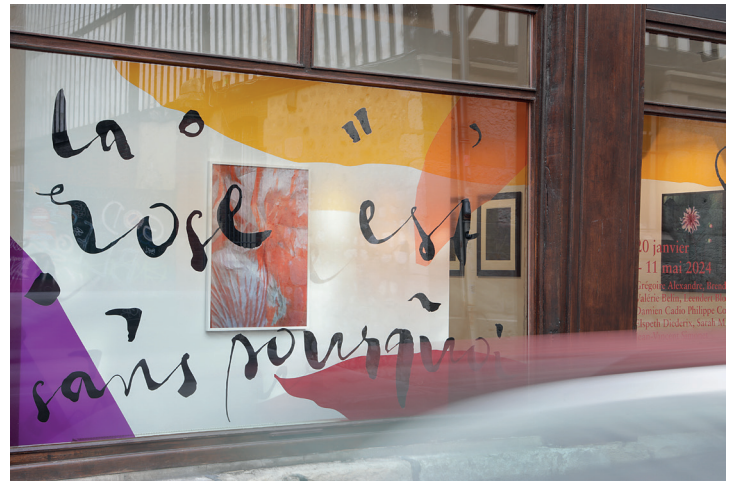 La
rose est
sans pourquoi
20 janvier
- 11 mai 2024
Grégoire Alexandre,
Valérie Belin, Leendert
Damien Cadio Philippe
Elspeth Diederix, Sarah